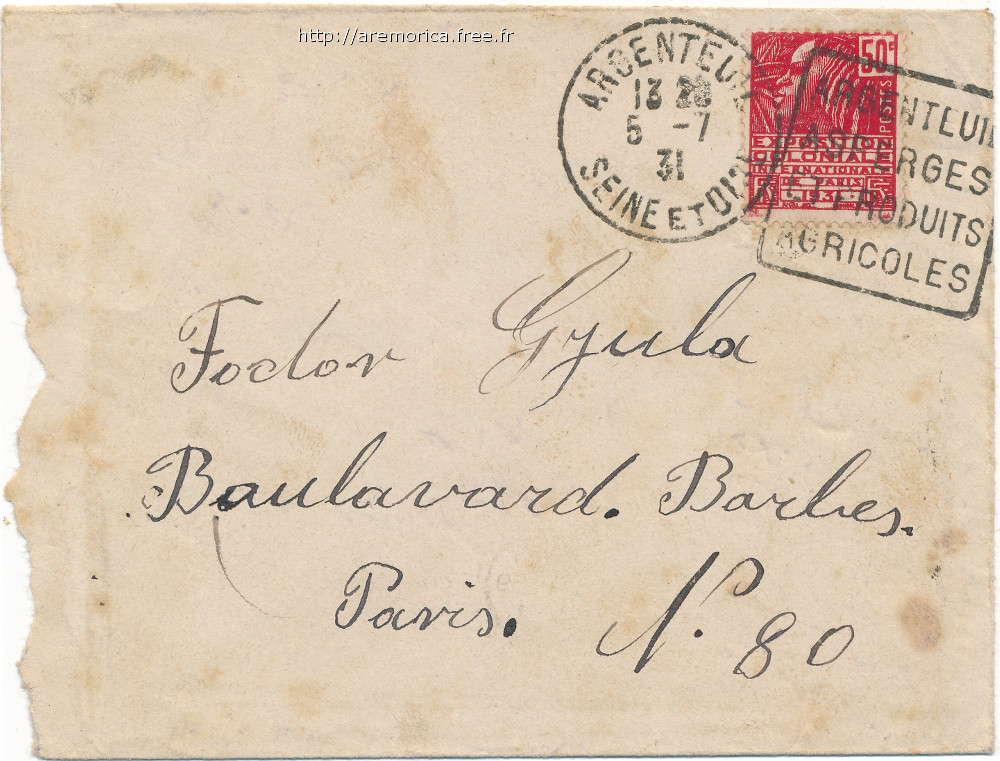 http://aremorica.free.fr
ARGENTEUIL
13
5 -7
31
SEINE ET OISE
50c
POSTES
EXPOSITION
COLONIALE
INTERNATIONALE
DE PARIS
1931
ARGENTEUIL
ASPERGES
ET PRODUITS
AGRICOLES
Fodor Gyula
Baulavard. Barbes.
Paris. N. 80